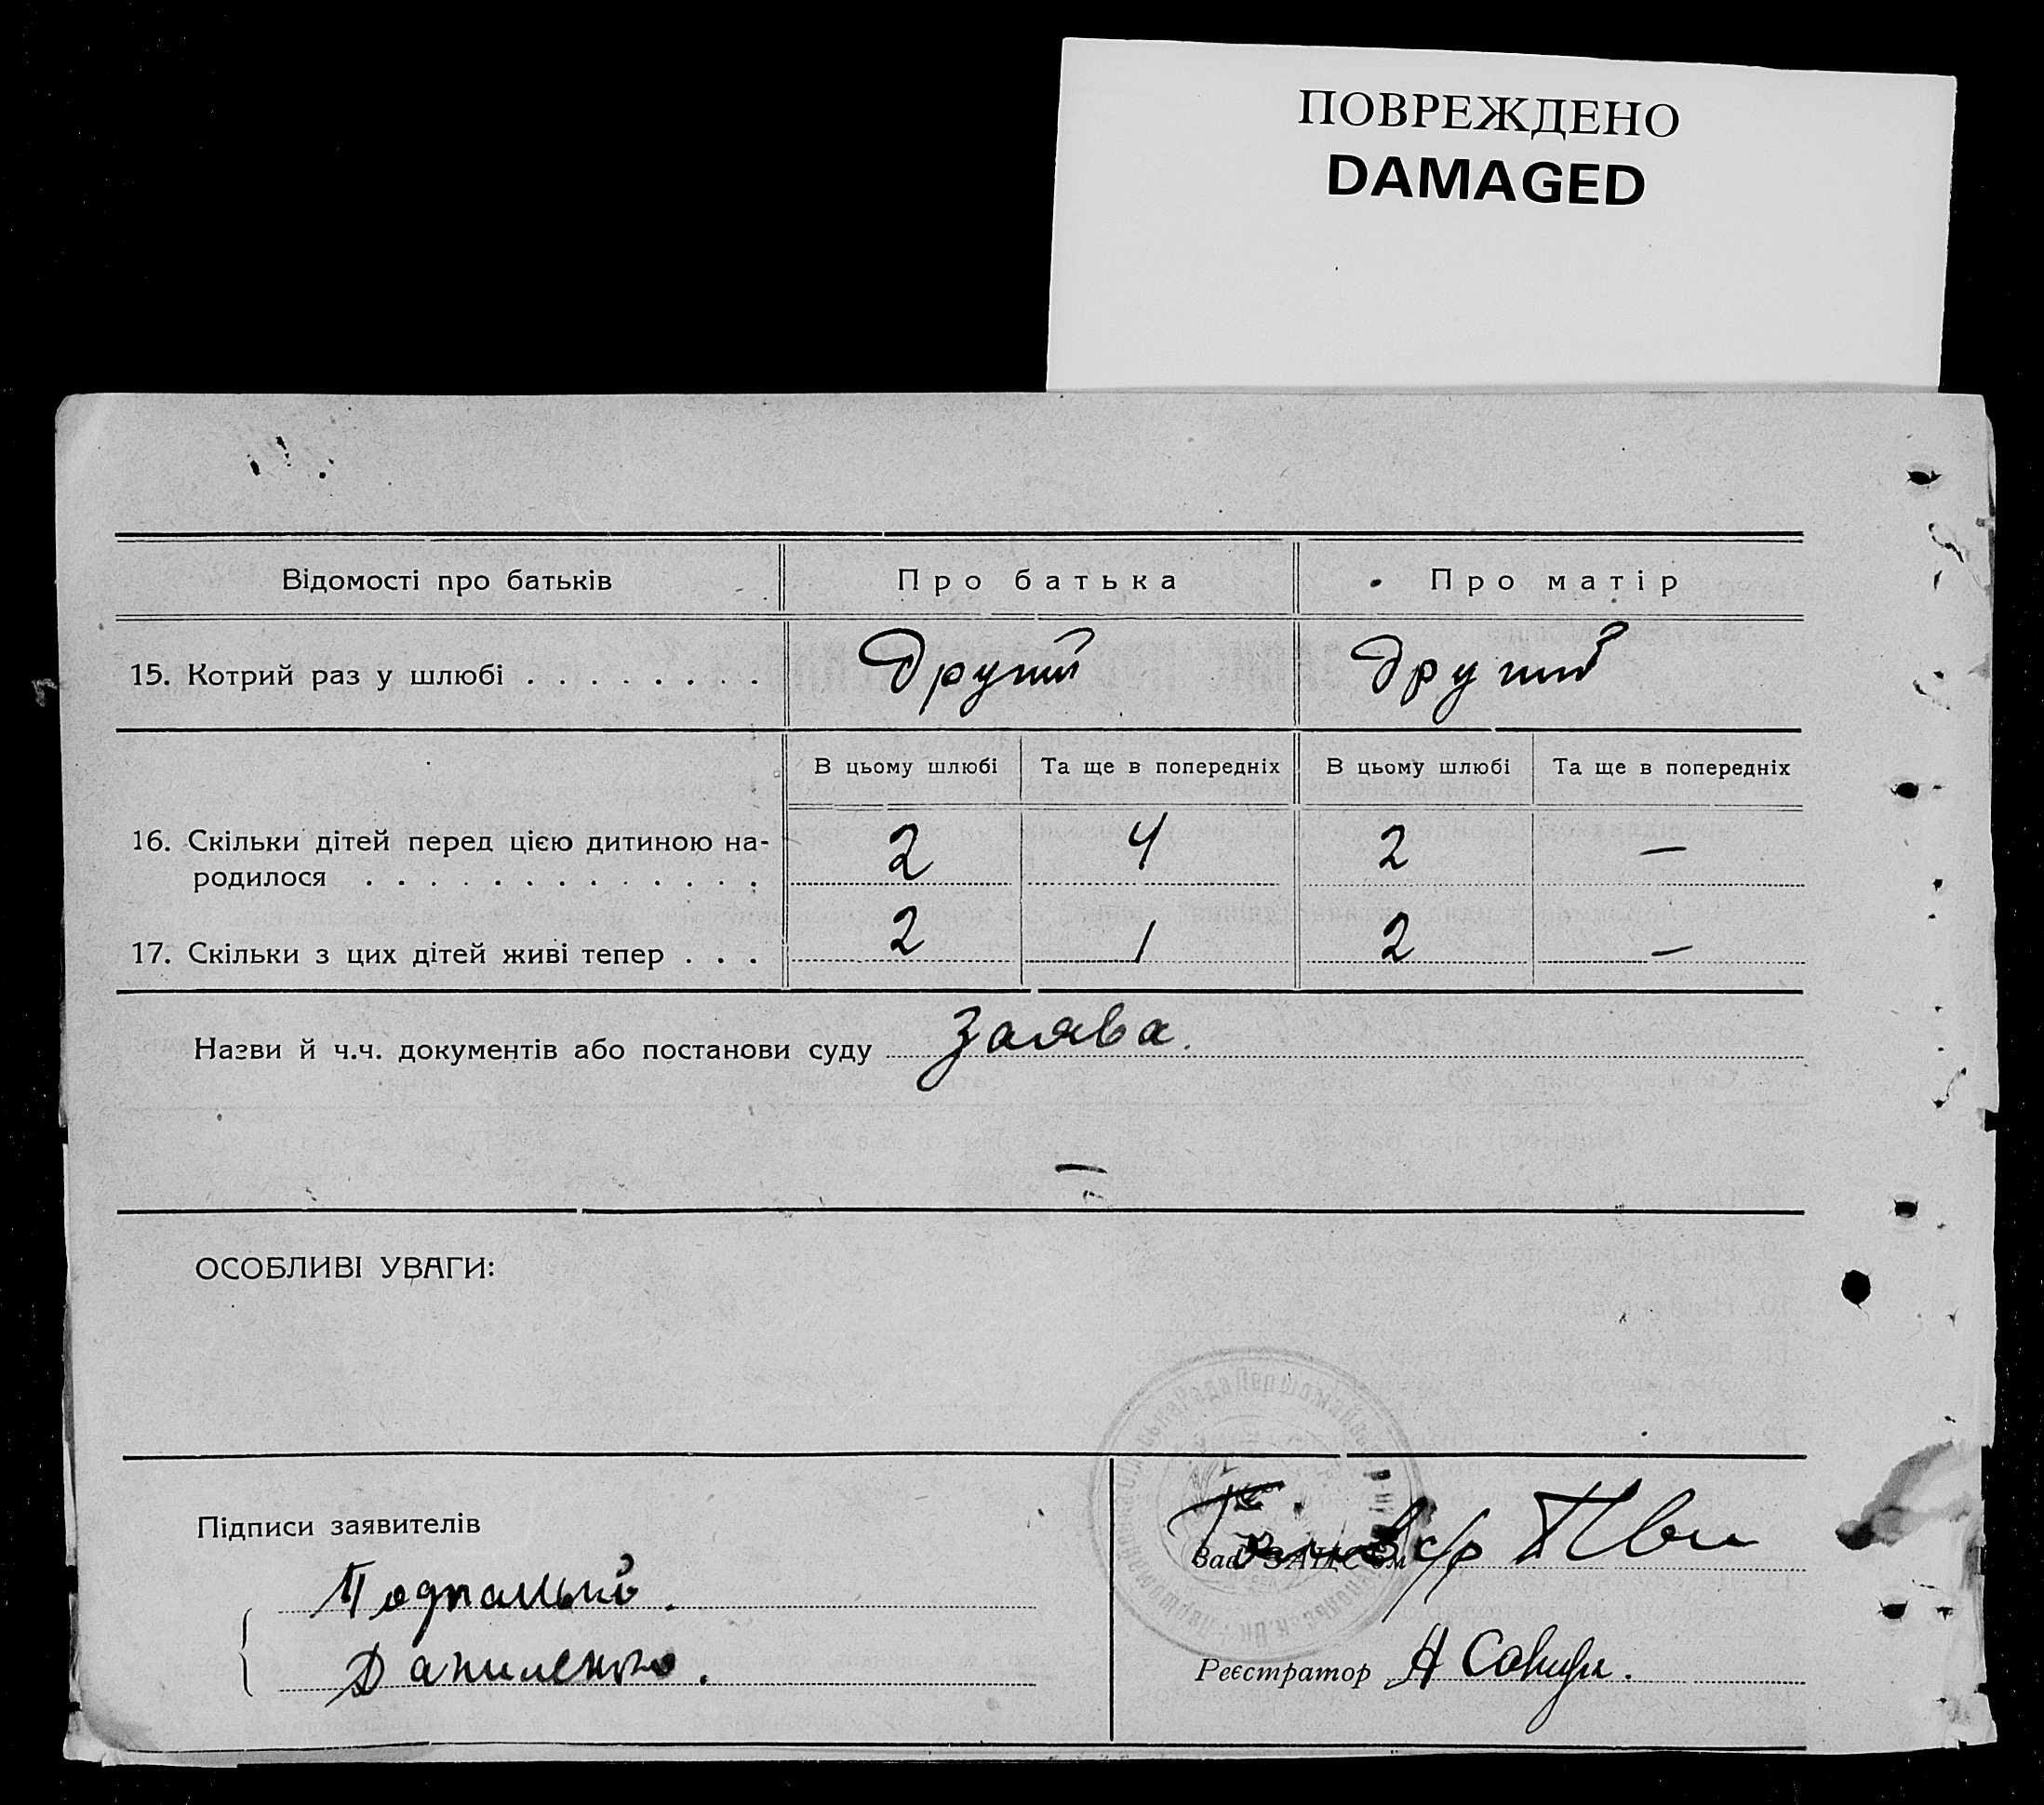 ПОВРЕЖДЕНО
DAMAGED
Відомості про батьків Про батька Про матір
15. Котрий раз у шлюбі . . . . . . . . Другий Другий
В цьому шлюбі Та ще в попередніх В цьому шлюбі Та ще в попередніх
16. Скільки дітей перед цією дитиною на-
родилося . . . . . . . . . . . . . . 2 4 2 —
17. Скільки з цих дітей живі тепер . . . 2 1 2 —
Назви й ч.ч. документів або постанови суду Заява.
—
ОСОБЛИВІ УВАГИ:
Підписи заявителів
Зав. ЗАЦС'ом с/р
Даниленко.
Реєстратор А